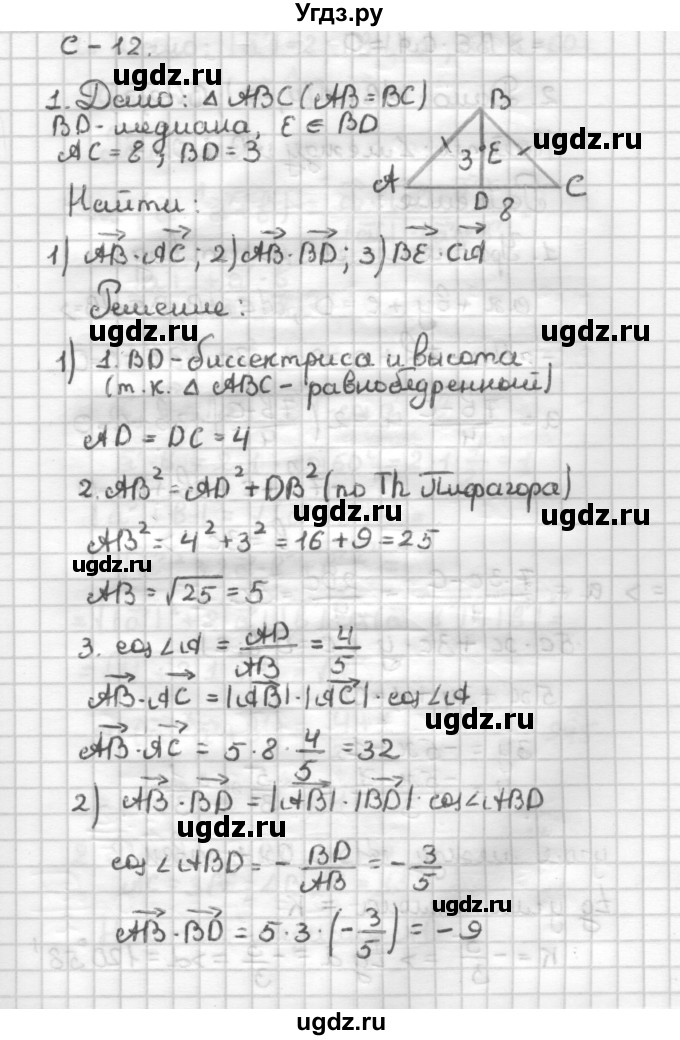 Угдз.ру
С - 12.
ugdz.ru
1. Дано: △ ABC (AB = BC)
BD - медиана, E ∈ BD
AC = 8; BD = 3
ugdz.ru
B
3 E
A D 8 C
Найти:
1) AB · AC; 2) AB · BD; 3) BE · CA
ugdz.ru
ugdz.ru
Решение:
ugdz.ru
1) 1. BD - биссектриса и высота
(т.к. △ ABC - равнобедренный)
ugdz.ru
ugdz.ru
AD = DC = 4
2. AB² = AD² + DB² (по Th Пифагора)
ugdz.ru
ugdz.ru
AB² = 4² + 3² = 16 + 9 = 25
ugdz.ru
AB = √25 = 5
ugdz.ru
3. cos∠A = AD/AB = 4/5
ugdz.ru
AB · AC = |AB| · |AC| · cos∠A
ugdz.ru
AB · AC = 5 · 8 · 4/5 = 32
2) AB · BD = |AB| · |BD| · cos∠ABD
ugdz.ru
cos∠ABD = - BD/AB = - 3/5
ugdz.ru
AB · BD = 5 · 3 · (- 3/5) = - 9
ugdz.ru
ugdz.ru